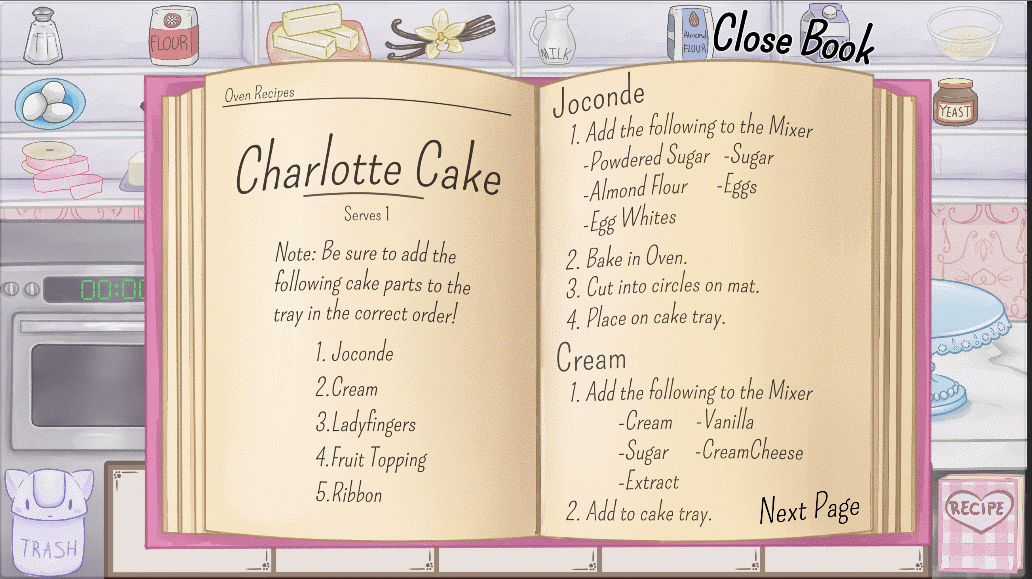 FLOUR
MILK
Almond
FLOUR
Close Book
YEAST
00:00
Oven Recipes
Charlotte Cake
Serves 1
Note: Be sure to add the
following cake parts to the
tray in the correct order!
1. Joconde
2.Cream
3.Ladyfingers
4.Fruit Topping
5.Ribbon
Joconde
1. Add the following to the Mixer
-Powdered Sugar -Sugar
-Almond Flour -Eggs
-Egg Whites
2. Bake in Oven.
3. Cut into circles on mat.
4. Place on cake tray.
Cream
1. Add the following to the Mixer
-Cream -Vanilla
-Sugar -CreamCheese
-Extract
2. Add to cake tray.
Next Page
TRASH
RECIPE